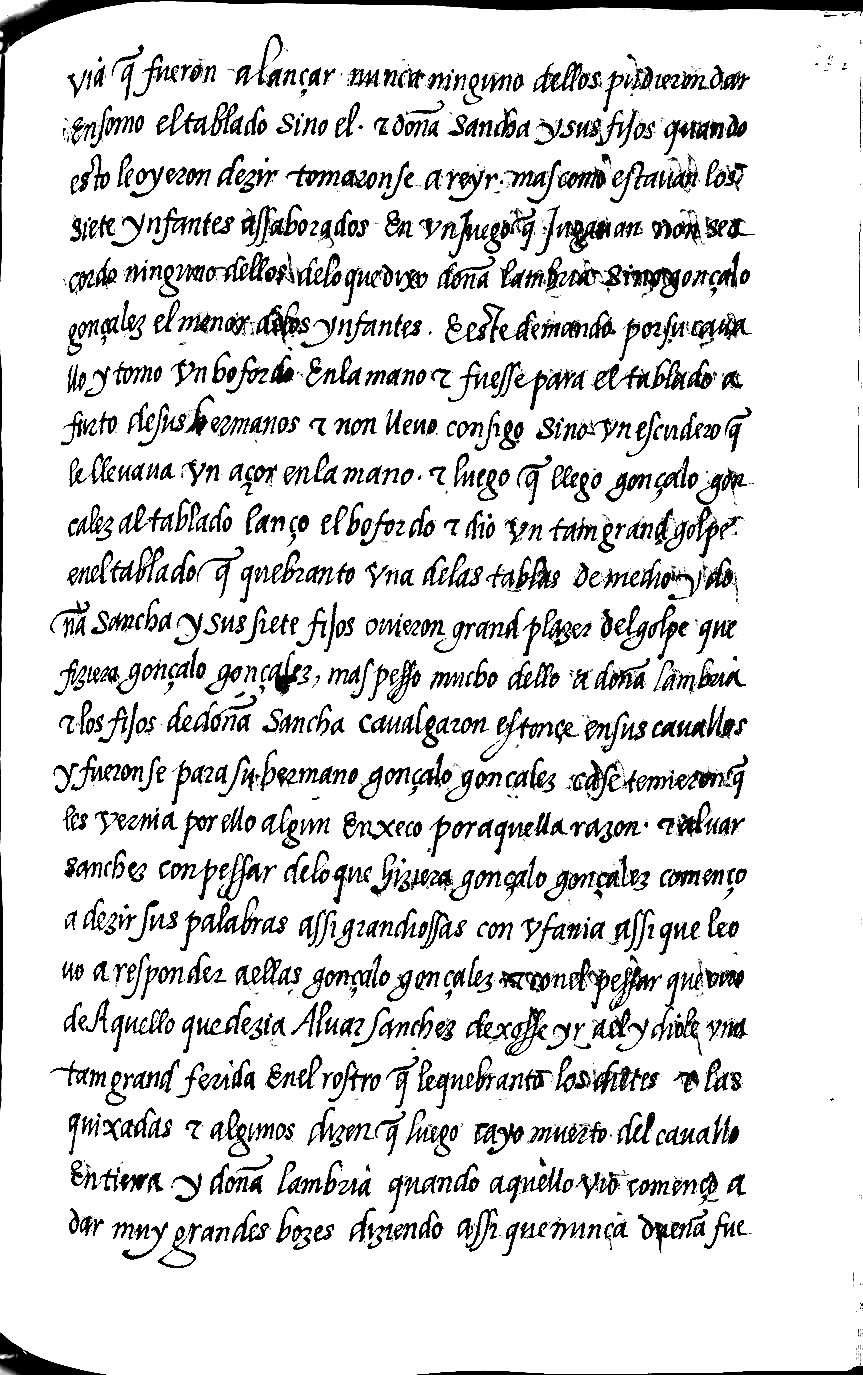 via q̃ fueron a lançar nunca ninguno dellos pudieron dar
Ensomo el tablado Sino el. τ doña Sancha y sus fijos quando
esto le oyeron dezir tomaronse a reyr. mas como estavan los
siete ynfantes assaborados En vn Juego q̃ Jugavan non sea
cordo ninguno dellos delo que dixo doña lambria Sino gonçalo
gonçalez el menor delos ynfantes. E este demando por su cava
llo y tomo vn bofordo Enla mano τ fuesse para el tablado a
furto de sus hermanos τ non llevo consigo Sino vn escudero q̃
le llevava vn açor enla mano. τ luego q̃ llego gonçalo gon
calez al tablado lanço el bofordo τ dio vn tam grand golpe
enel tablado q̃ quebranto vna delas tablas De medio y do
ña Sancha y sus siete fijos ovieron grand plazer del golpe que
fiziera gonçalo gonçalez, mas pesso mucho dello a doña lambria
τ los fijos de doña Sancha cavalgaron estonçe en sus cavallos
y fueronse para su hermano gonçalo goncalez ca se temieron q̃
les vernia por ello algun Enxeco por aquella razon. τ alvar
sanchez con pessar delo que hiziera gonçalo gonçalez començo
a dezir sus palabras assi grandiossas con vfania assi que le o
vo a responder a ellas gonçalo gonçalez τ con el pessar que ovo
de Aquello que dezia Alvar sanchez dexosse yr a el y diole vna
tam grand ferida Enel rostro q̃ le quebranto los dietes τ las
quixadas τ algunos dizen q̃ luego cayo muerto del cavallo
En tierra y doña lambria quando aquello vio començo a
dar muy grandes bozes diziendo assi que nunca dueña fue